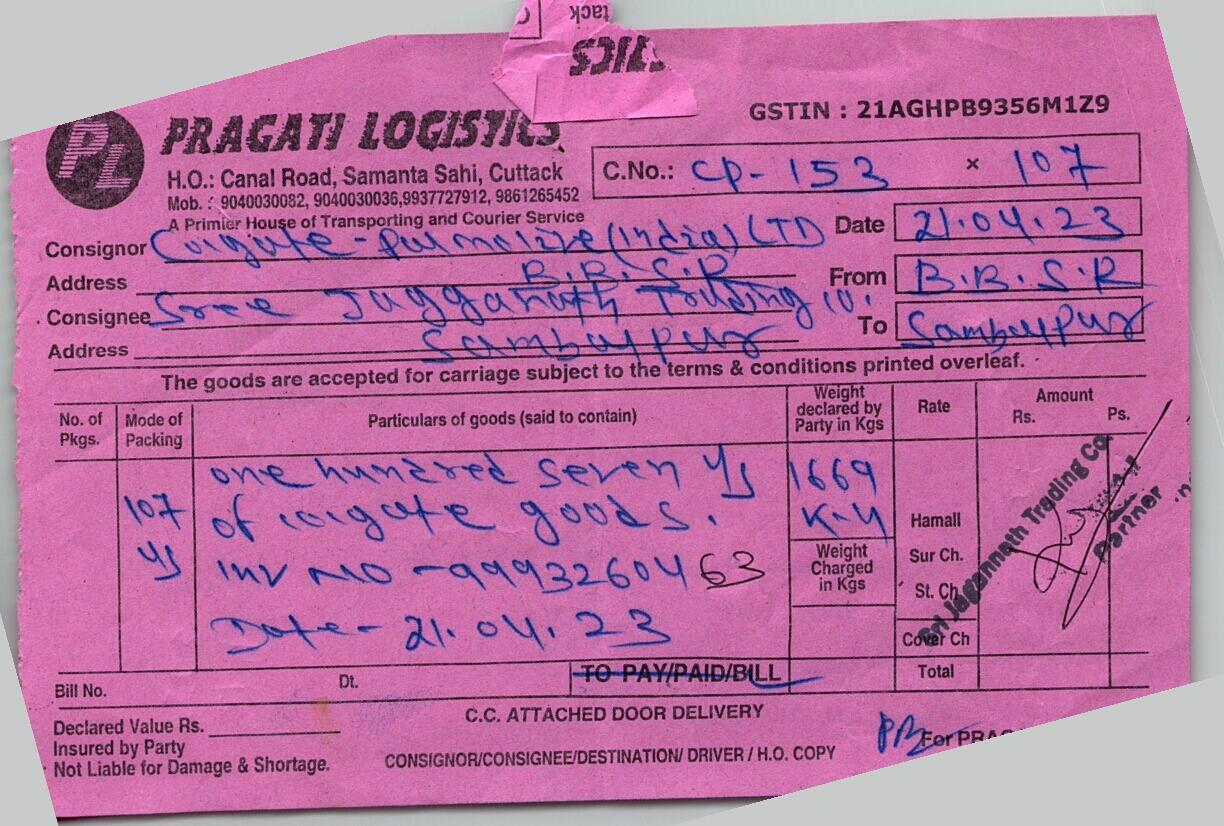 tack
STICS
GSTIN : 21AGHPB9356M1Z9
PL PRAGATI LOGISTICS
H.O.: Canal Road, Samanta Sahi, Cuttack
Mob. : 9040030082, 9040030036,9937727912, 9861265452
A Primier House of Transporting and Courier Service
C.No.: CP-153 × 107
Consignor Colgate-Palmolive (India) LTD Date 21.04.23
Address B.B.S.R From B.B.S.R
Consignee Sree Jagganath Trading co. To Sambalpur
Address Sambalpur
The goods are accepted for carriage subject to the terms & conditions printed overleaf.
No. of Pkgs. Mode of Packing Particulars of goods (said to contain) Weight declared by Party in Kgs Rate Amount Rs. Ps.
one hundred seven 1669
107 of colgate goods. Hamall
Inv No -99932604 63 Weight Charged in Kgs Sur Ch.
St. Ch
Date- 21.04.23 Cover Ch
Sri Jagannath Trading Co.
Partner
Bill No. Dt. TO PAY/PAID/BILL Total
Declared Value Rs. C.C. ATTACHED DOOR DELIVERY
Insured by Party For PRAG
Not Liable for Damage & Shortage. CONSIGNOR/CONSIGNEE/DESTINATION/ DRIVER / H.O. COPY